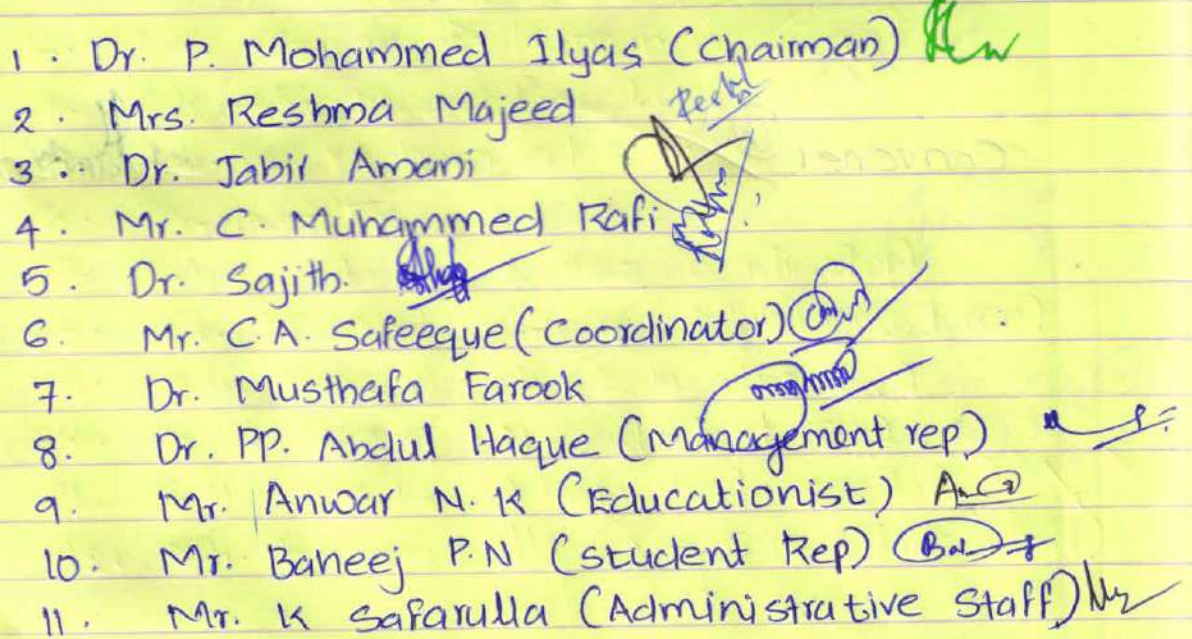 1. Dr. P. Mohammed Ilyas (Chairman)
2. Mrs. Reshma Majeed
3. Dr. Jabir Amani
4. Mr. C. Muhammed Rafi
5. Dr. Sajith.
6. Mr. C.A. Safeeque (Coordinator)
7. Dr. Musthafa Farook
8. Dr. PP. Abdul Haque (Management rep)
9. Mr. Anwar N.K (Educationist)
10. Mr. Baheej P.N (Student Rep)
11. Mr. K Safarulla (Administrative Staff)